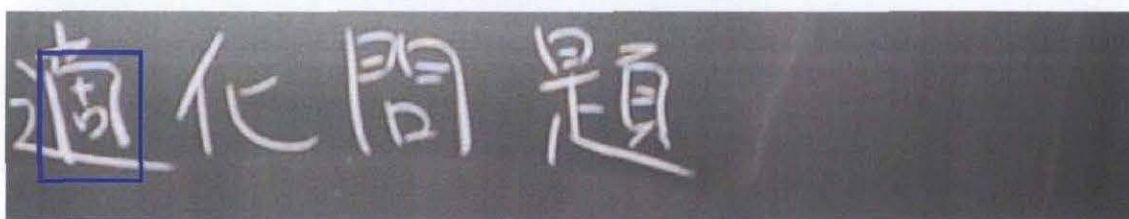 適化問題